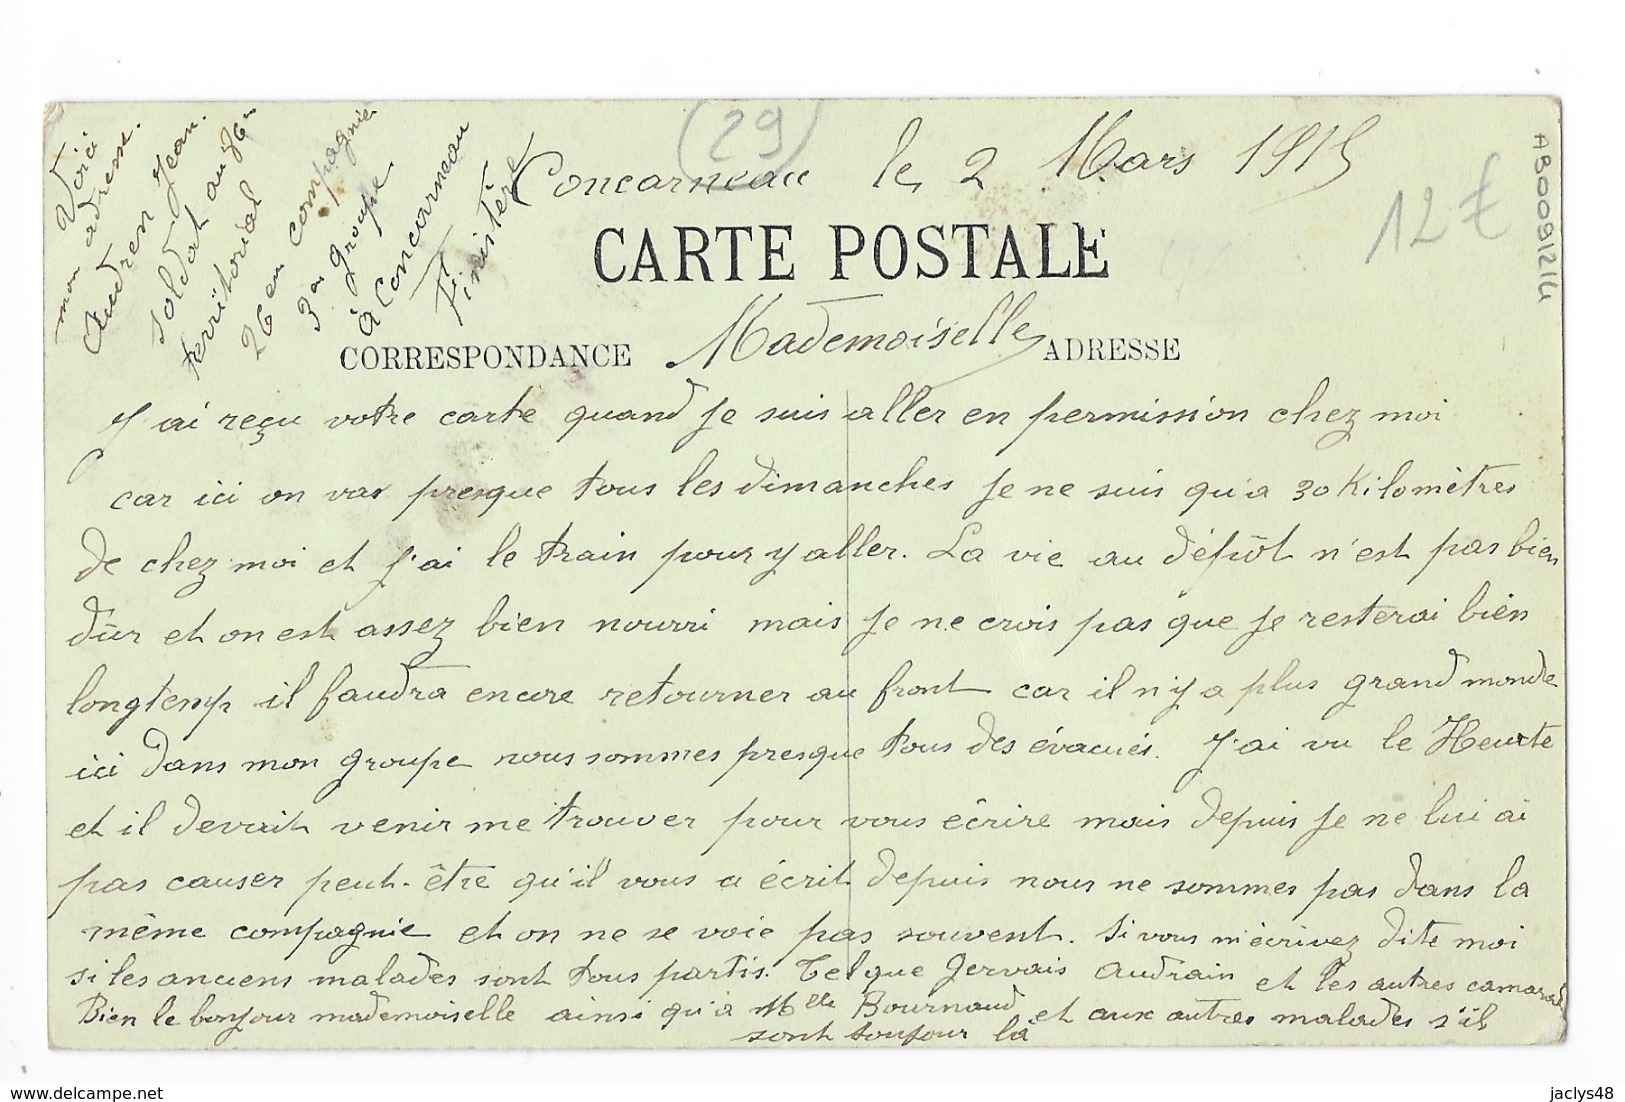 Voici
mon adresse.
Audren Jean.
soldat au 86em
territorial
26em compagnie
3em groupe
à Concarneau
Finistère
(29)
Concarneau le 2 Mars 1915
12 €
AB0091214
CARTE POSTALE
Mademoiselle
CORRESPONDANCE
ADRESSE
J'ai reçu votre carte quand je suis aller en permission chez moi
car ici on vas presque tous les dimanches je ne suis qu'a 30 Kilomètres
de chez moi et j'ai le train pour y aller. La vie au dépôt n'est pas bien
dûr et on est assez bien nourri mais je ne crois pas que je resterai bien
longtemp il faudra encore retourner au front car il n'y a plus grand monde
ici dans mon groupe nous sommes presque tous des évacués. J'ai vu le Heurte
et il devait venir me trouver pour vous écrire mais depuis je ne lui ai
pas causer peut-être qu'il vous a écrit depuis nous ne sommes pas dans la
même compagnie et on ne se voie pas souvent. Si vous m'écrivez dite moi
si les anciens malades sont tous partis. Tel que Gervais Audrain et les autres camarad
Bien le bonjour mademoiselle ainsi qu'à Mlle Bournaud et aux autres malades s'il
sont toujour là
jaclys48